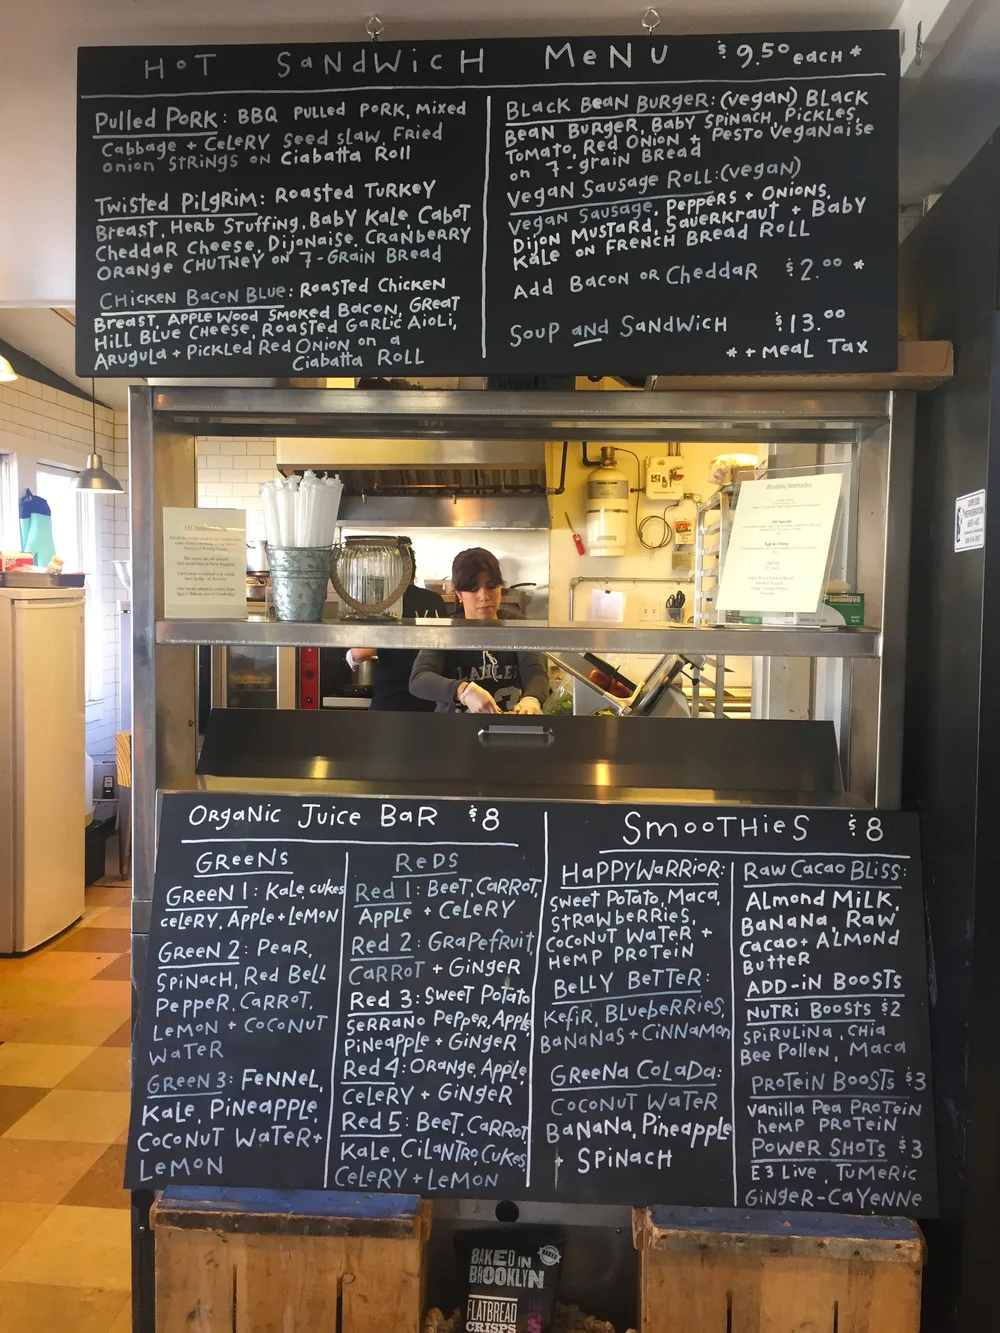 HOT SANDWICH MENU $9.50 EACH *
Pulled PORK: BBQ PULLED PORK, Mixed
Cabbage + CELERY Seed SLAW, FRied
onion STRINGS on Ciabatta Roll
Twisted PilgRim: Roasted TURKEY
Breast, Herb Stuffing, Baby Kale, Cabot
Cheddar Cheese, Dijonaise, CRANBERRY
ORANGE CHUTNEY on 7-GRain BRead
CHicken Bacon Blue: Roasted Chicken
Breast, APPLE Wood Smoked Bacon, GReat
Hill Blue Cheese, Roasted GaRlic Aioli,
Arugula + Pickled Red Onion on a
Ciabatta Roll
BLack Bean BURGER: (vegan) BLack
Bean BURGER, Baby Spinach, Pickles,
Tomato, Red Onion + Pesto Veganaise
on 7-grain Bread
Vegan Sausage Roll: (vegan)
Vegan Sausage, Peppers + Onions,
Dijon Mustard, Sauerkraut + Baby
Kale on French Bread Roll
Add Bacon or Cheddar $2.00 *
Soup and Sandwich $13.00
* + Meal Tax
Breakfast Sandwiches
141 Special
Egg & Cheese
LAHLE
Organic Juice Bar $8
GReeNs
GReeN 1: Kale, cukes
celery, Apple + Lemon
GReeN 2: Pear,
Spinach, Red Bell
Pepper, Carrot,
Lemon + Coconut
Water
GReeN 3: Fennel,
Kale, Pineapple,
Coconut Water +
Lemon
ReDS
Red 1: Beet, Carrot,
Apple + Celery
Red 2: Grapefruit,
Carrot + Ginger
Red 3: Sweet Potato
Serrano Pepper, Apple
Pineapple + Ginger
Red 4: Orange, Apple,
Celery + Ginger
Red 5: Beet, Carrot
Kale, Cilantro, Cukes,
Celery + Lemon
SmooTHieS $8
HaPPY WaRRioR:
Sweet Potato, Maca,
Strawberries,
Coconut Water +
Hemp Protein
Belly Better:
Kefir, Blueberries,
Bananas + Cinnamon
Greena Colada:
Coconut Water
Banana, Pineapple
+ Spinach
Raw Cacao Bliss:
Almond Milk,
Banana, Raw
Cacao + Almond
Butter
ADD-in Boosts
Nutri Boosts $2
Spirulina, Chia
Bee Pollen, Maca
Protein Boosts $3
Vanilla Pea Protein
hemp Protein
Power Shots $3
E3 Live, Tumeric
Ginger-Cayenne
BAKED IN
BROOKLYN
FLATBREAD
CRISPS